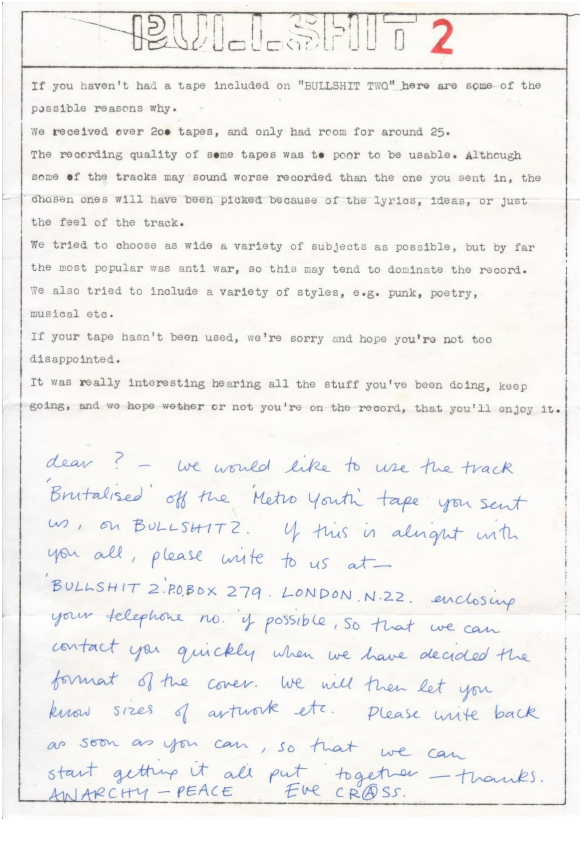 BULLSHIT 2
If you haven't had a tape included on "BULLSHIT TWO" here are some of the
possible reasons why.
We received over 200 tapes, and only had room for around 25.
The recording quality of some tapes was to poor to be usable. Although
some of the tracks may sound worse recorded than the one you sent in, the
chosen ones will have been picked because of the lyrics, ideas, or just
the feel of the track.
We tried to choose as wide a variety of subjects as possible, but by far
the most popular was anti war, so this may tend to dominate the record.
We also tried to include a variety of styles, e.g. punk, poetry,
musical etc.
If your tape hasn't been used, we're sorry and hope you're not too
disappointed.
It was really interesting hearing all the stuff you've been doing, keep
going, and we hope wether or not you're on the record, that you'll enjoy it.
dear ? — we would like to use the track
'Brutalised' off the 'Metro Youth' tape you sent
us, on BULLSHIT 2. If this is alright with
you all, please write to us at—
'BULLSHIT 2'. P.O. BOX 279. LONDON. N.22. enclosing
your telephone no. if possible, so that we can
contact you quickly when we have decided the
format of the cover. We will then let you
know sizes of artwork etc. Please write back
as soon as you can, so that we can
start getting it all put together — thanks.
ANARCHY — PEACE Eve CRⒶSS.